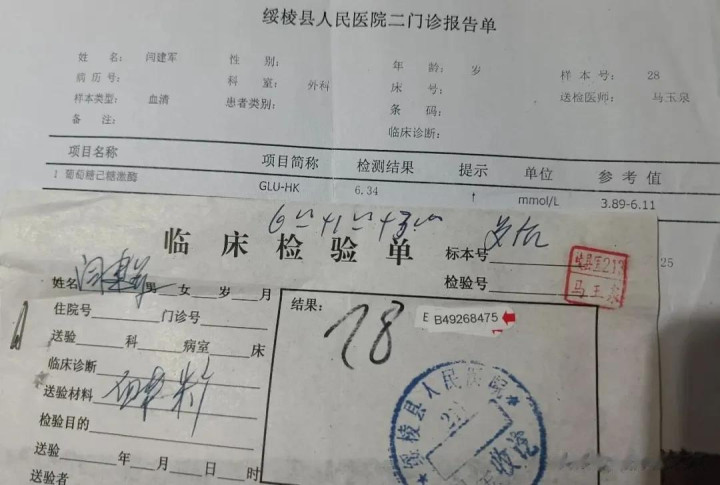 绥棱县人民医院二门诊报告单
姓 名: 闫建军 性 别: 年 龄: 岁 样 本 号: 28
病 历 号: 科 室: 外科 床 号: 送检医师: 马玉泉
样本类型: 血清 患者类别: 条 码:
备 注: 临床诊断:
项目名称 项目简称 检测结果 提示 单位 参 考 值
1 葡萄糖己糖激酶 GLU-HK 6.34 ↑ mmol/L 3.89-6.11
25
临床检验单
标本号
检验号
马玉泉
姓名 闫建军 男 女 岁 月
住院号 门诊号
送验 科 病室 床
临床诊断
送验材料
检验目的
送验 年 月 日 时
送验者
结果:
28
E B49268475
绥棱县人民医院
收讫